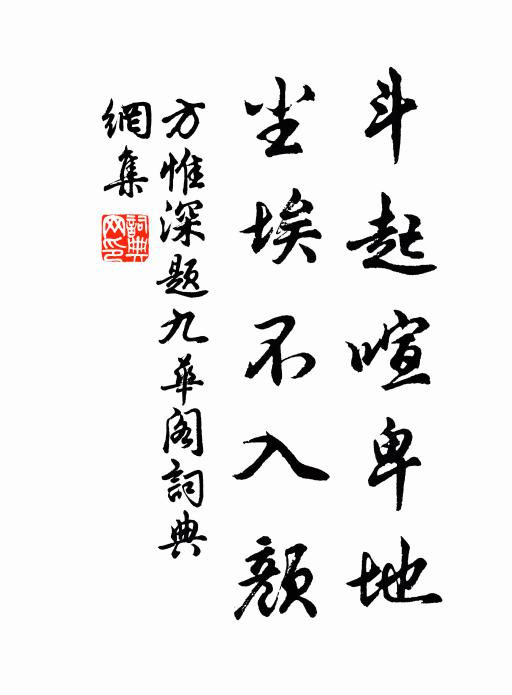 斗起喧卑地
尘埃不入颜
方惟深题九华阁词典
網集
詞典網印